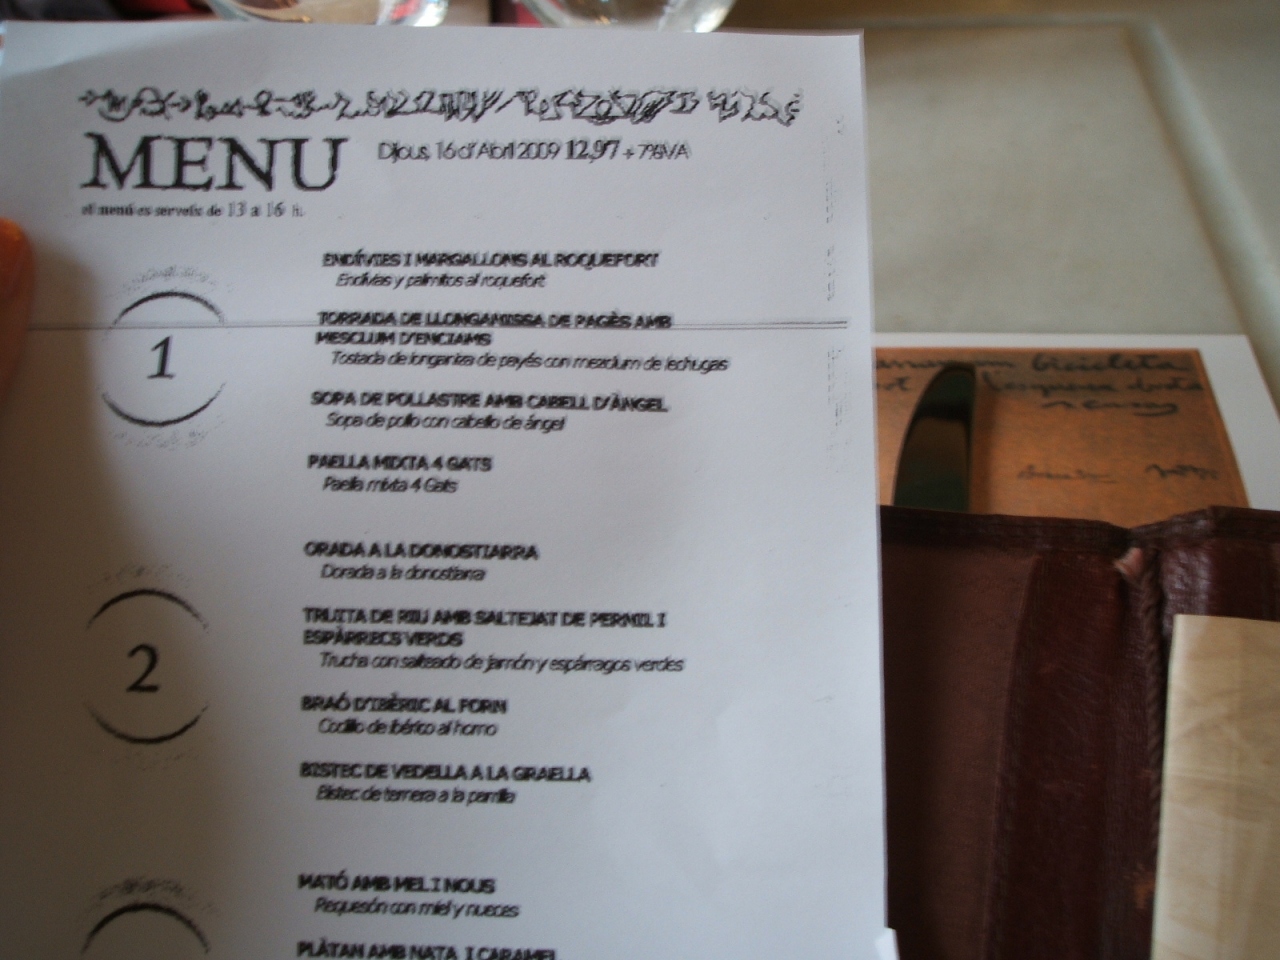 MENU
Dijous, 16 d'Abril 2009 12,97 + 7%IVA
el menú es serveix de 13 a 16 h.
1
ENDÍVIES I MARGALLONS AL ROQUEFORT
Endivias y palmitos al roquefort
TORRADA DE LLONGANISSA DE PAGÈS AMB
MESCLUM D'ENCIAMS
Tostada de longaniza de payés con mezclum de lechugas
SOPA DE POLLASTRE AMB CABELL D'ÀNGEL
Sopa de pollo con cabello de ángel
PAELLA MIXTA 4 GATS
Paella mixta 4 Gats
2
ORADA A LA DONOSTIARRA
Dorada a la donostiarra
TRUITA DE RIU AMB SALTEJAT DE PERNIL I
ESPÀRRECS VERDS
Trucha con salteado de jamón y espárragos verdes
BRAÓ D'IBÈRIC AL FORN
Codillo de ibérico al horno
BISTEC DE VEDELLA A LA GRAELLA
Bistec de ternera a la parrilla
MATÓ AMB MEL I NOUS
Requesón con miel y nueces
PLÀTAN AMB NATA I CARAMEL
bicicleta